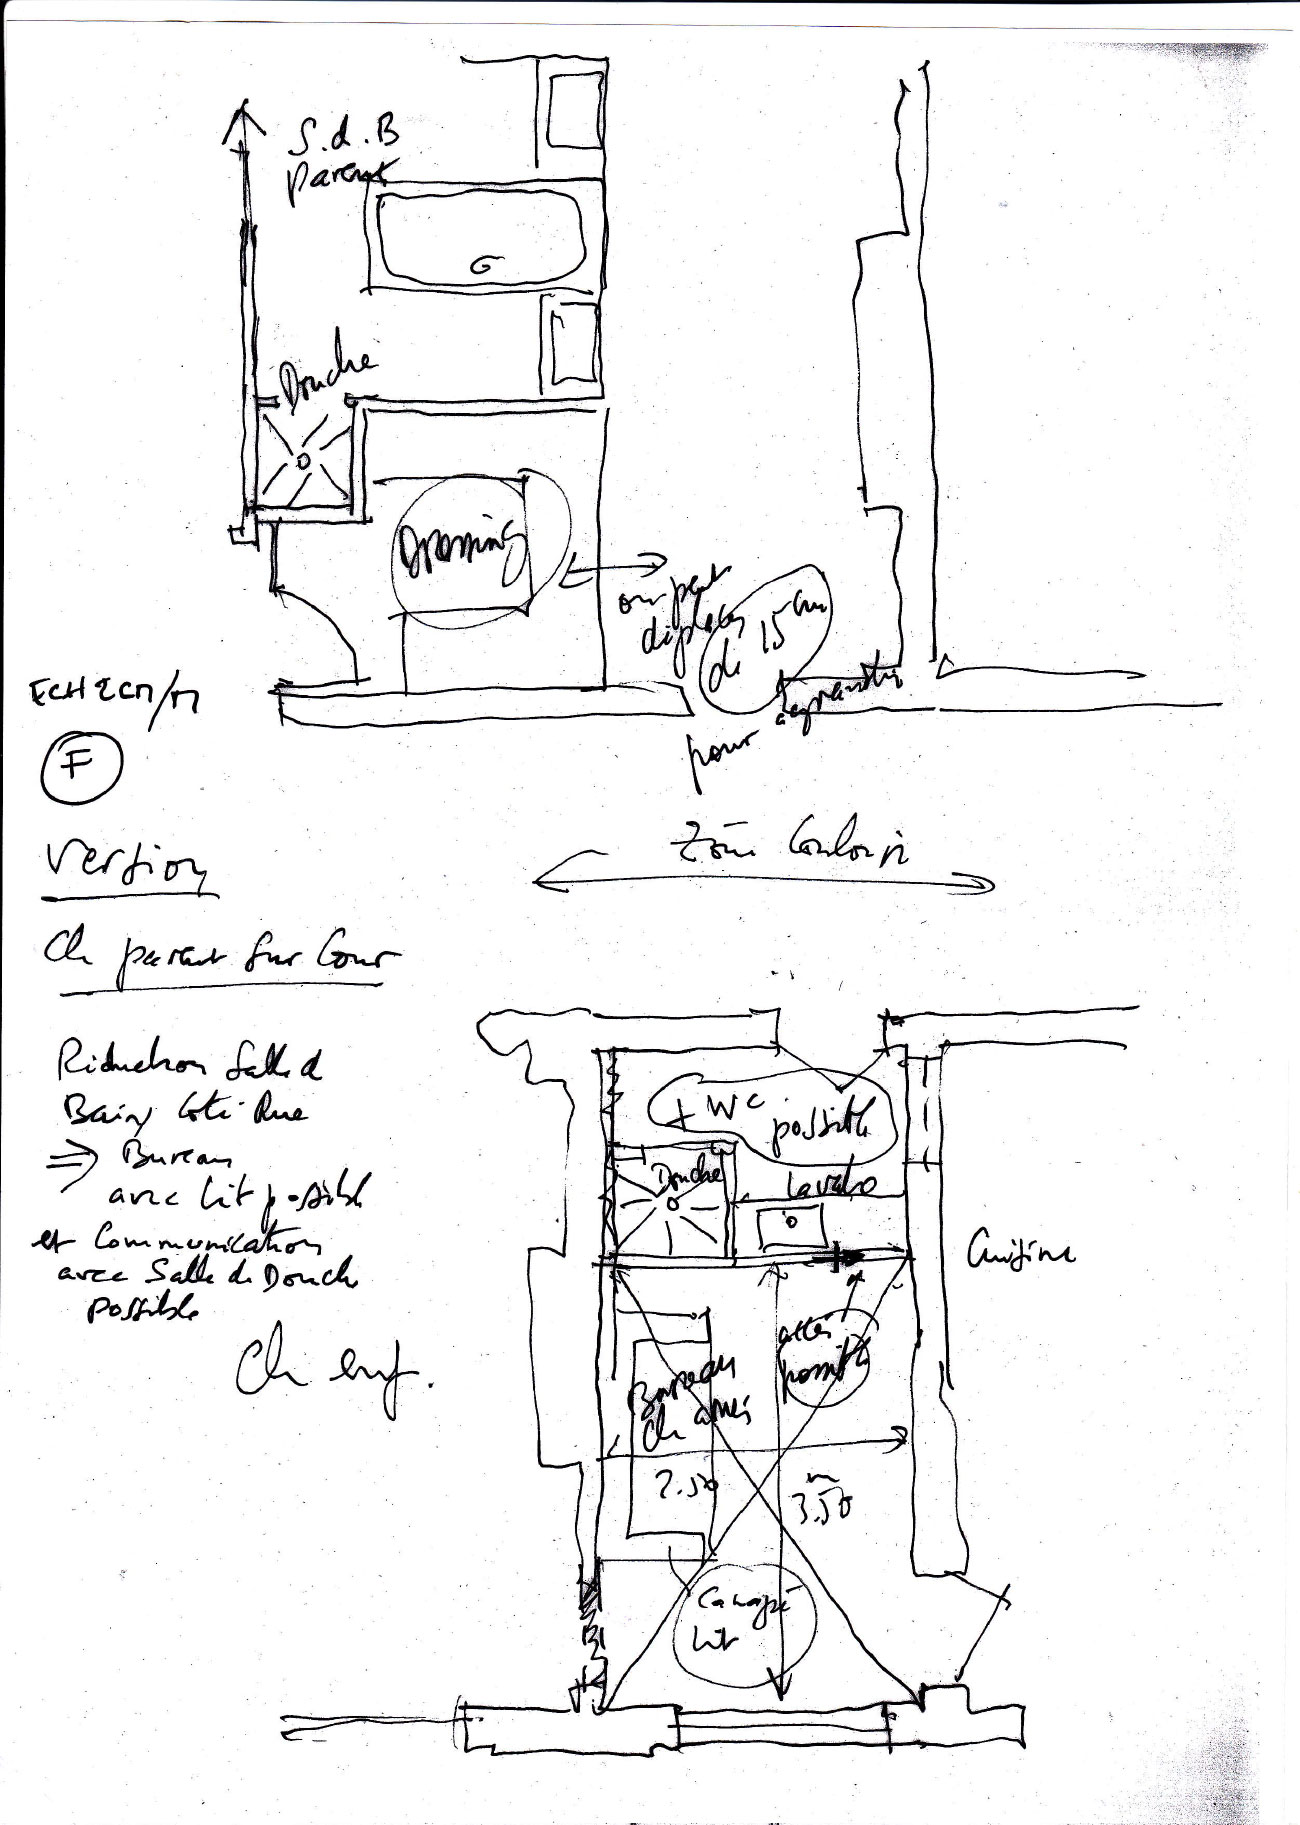 S.d.B
parent
Douche
Dressing
on peut
déplacer
de 15 cm
pour agrandir
ECH 2CM/M
F
Version
Zone Couloir
Ch parent sur Cour
Réduction Salle d
Bains Côté Rue
⇒ Bureau
avec lit possible
et Communication
avec Salle de Douche
possible
Ch enf.
+ WC possible
Douche
Lavabo
Cuisine
accès
possible
Bureau
Ch amis
2.50
3.50 m
Canapé
lit